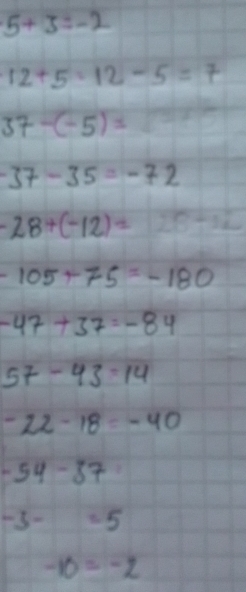 -5+3=-2
-12+5=12-5=7
37-(-5)=
-37-35=-72
-28+(-12)= 28-12
-105+75=-180
-47+37=-84
57-43=14
-22-18=-40
-54-37=
-3- =5
-10=-2